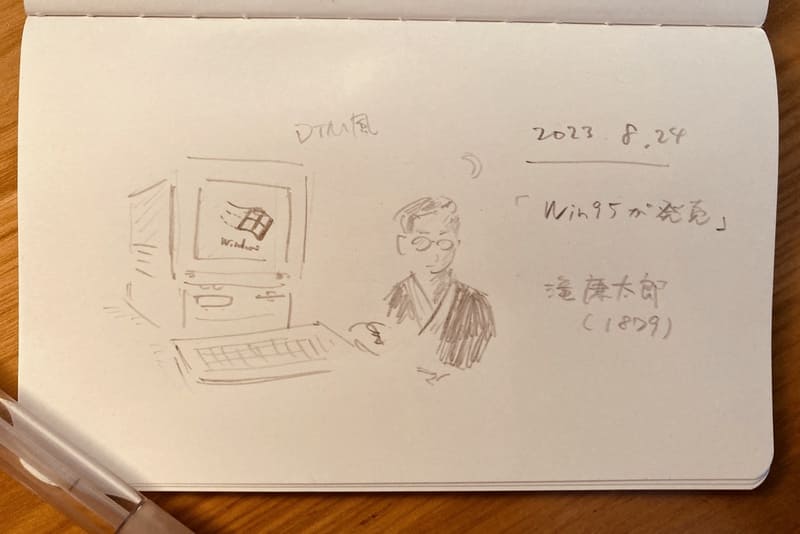 DTM風
2023 8.24
「Win95が発売」
Windows
滝廉太郎
(1879)